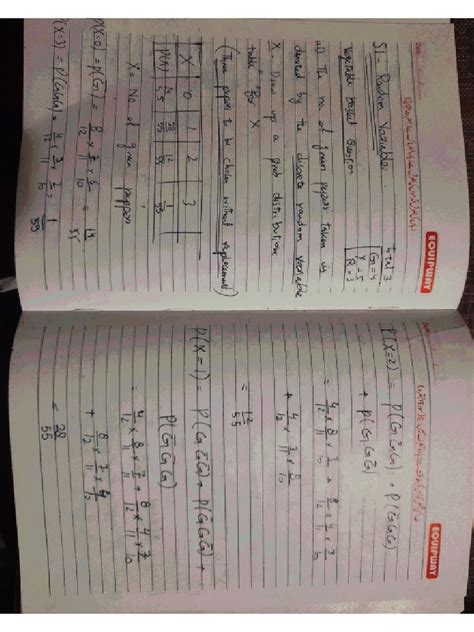 EQUIPWAY
S1 - Random Variable.
Total 3
G = 4
Y = 5
R = 3
Vegetable basket Question
iii) The no of green pepper taken is
denoted by the discrete random variable
X. Draw up a prob distribution
table for X
(Three peppers to be chosen without replacement)
X 0 1 2 3
P(X) 14/55 28/55 12/55 1/55
X = No. of green peppers
P(X=0) = P(G̅) = 8/12 × 7/11 × 6/10 = 14/55
P(X=3) = P(GGG) = 4/12 × 3/11 × 2/10 = 1/55
EQUIPWAY
P(X=2) = P(GG̅G) + P(G̅GG)
+ P(GGG̅)
= 4/12 × 8/11 × 3/10 + 8/12 × 4/11 × 3/10
+ 4/12 × 3/11 × 8/10
= 12/55
P(X=1) = P(GG̅G̅) + P(G̅GG̅) +
P(G̅G̅G)
= 4/12 × 8/11 × 7/10 + 8/12 × 4/11 × 7/10
+ 8/12 × 7/11 × 4/10
= 28/55